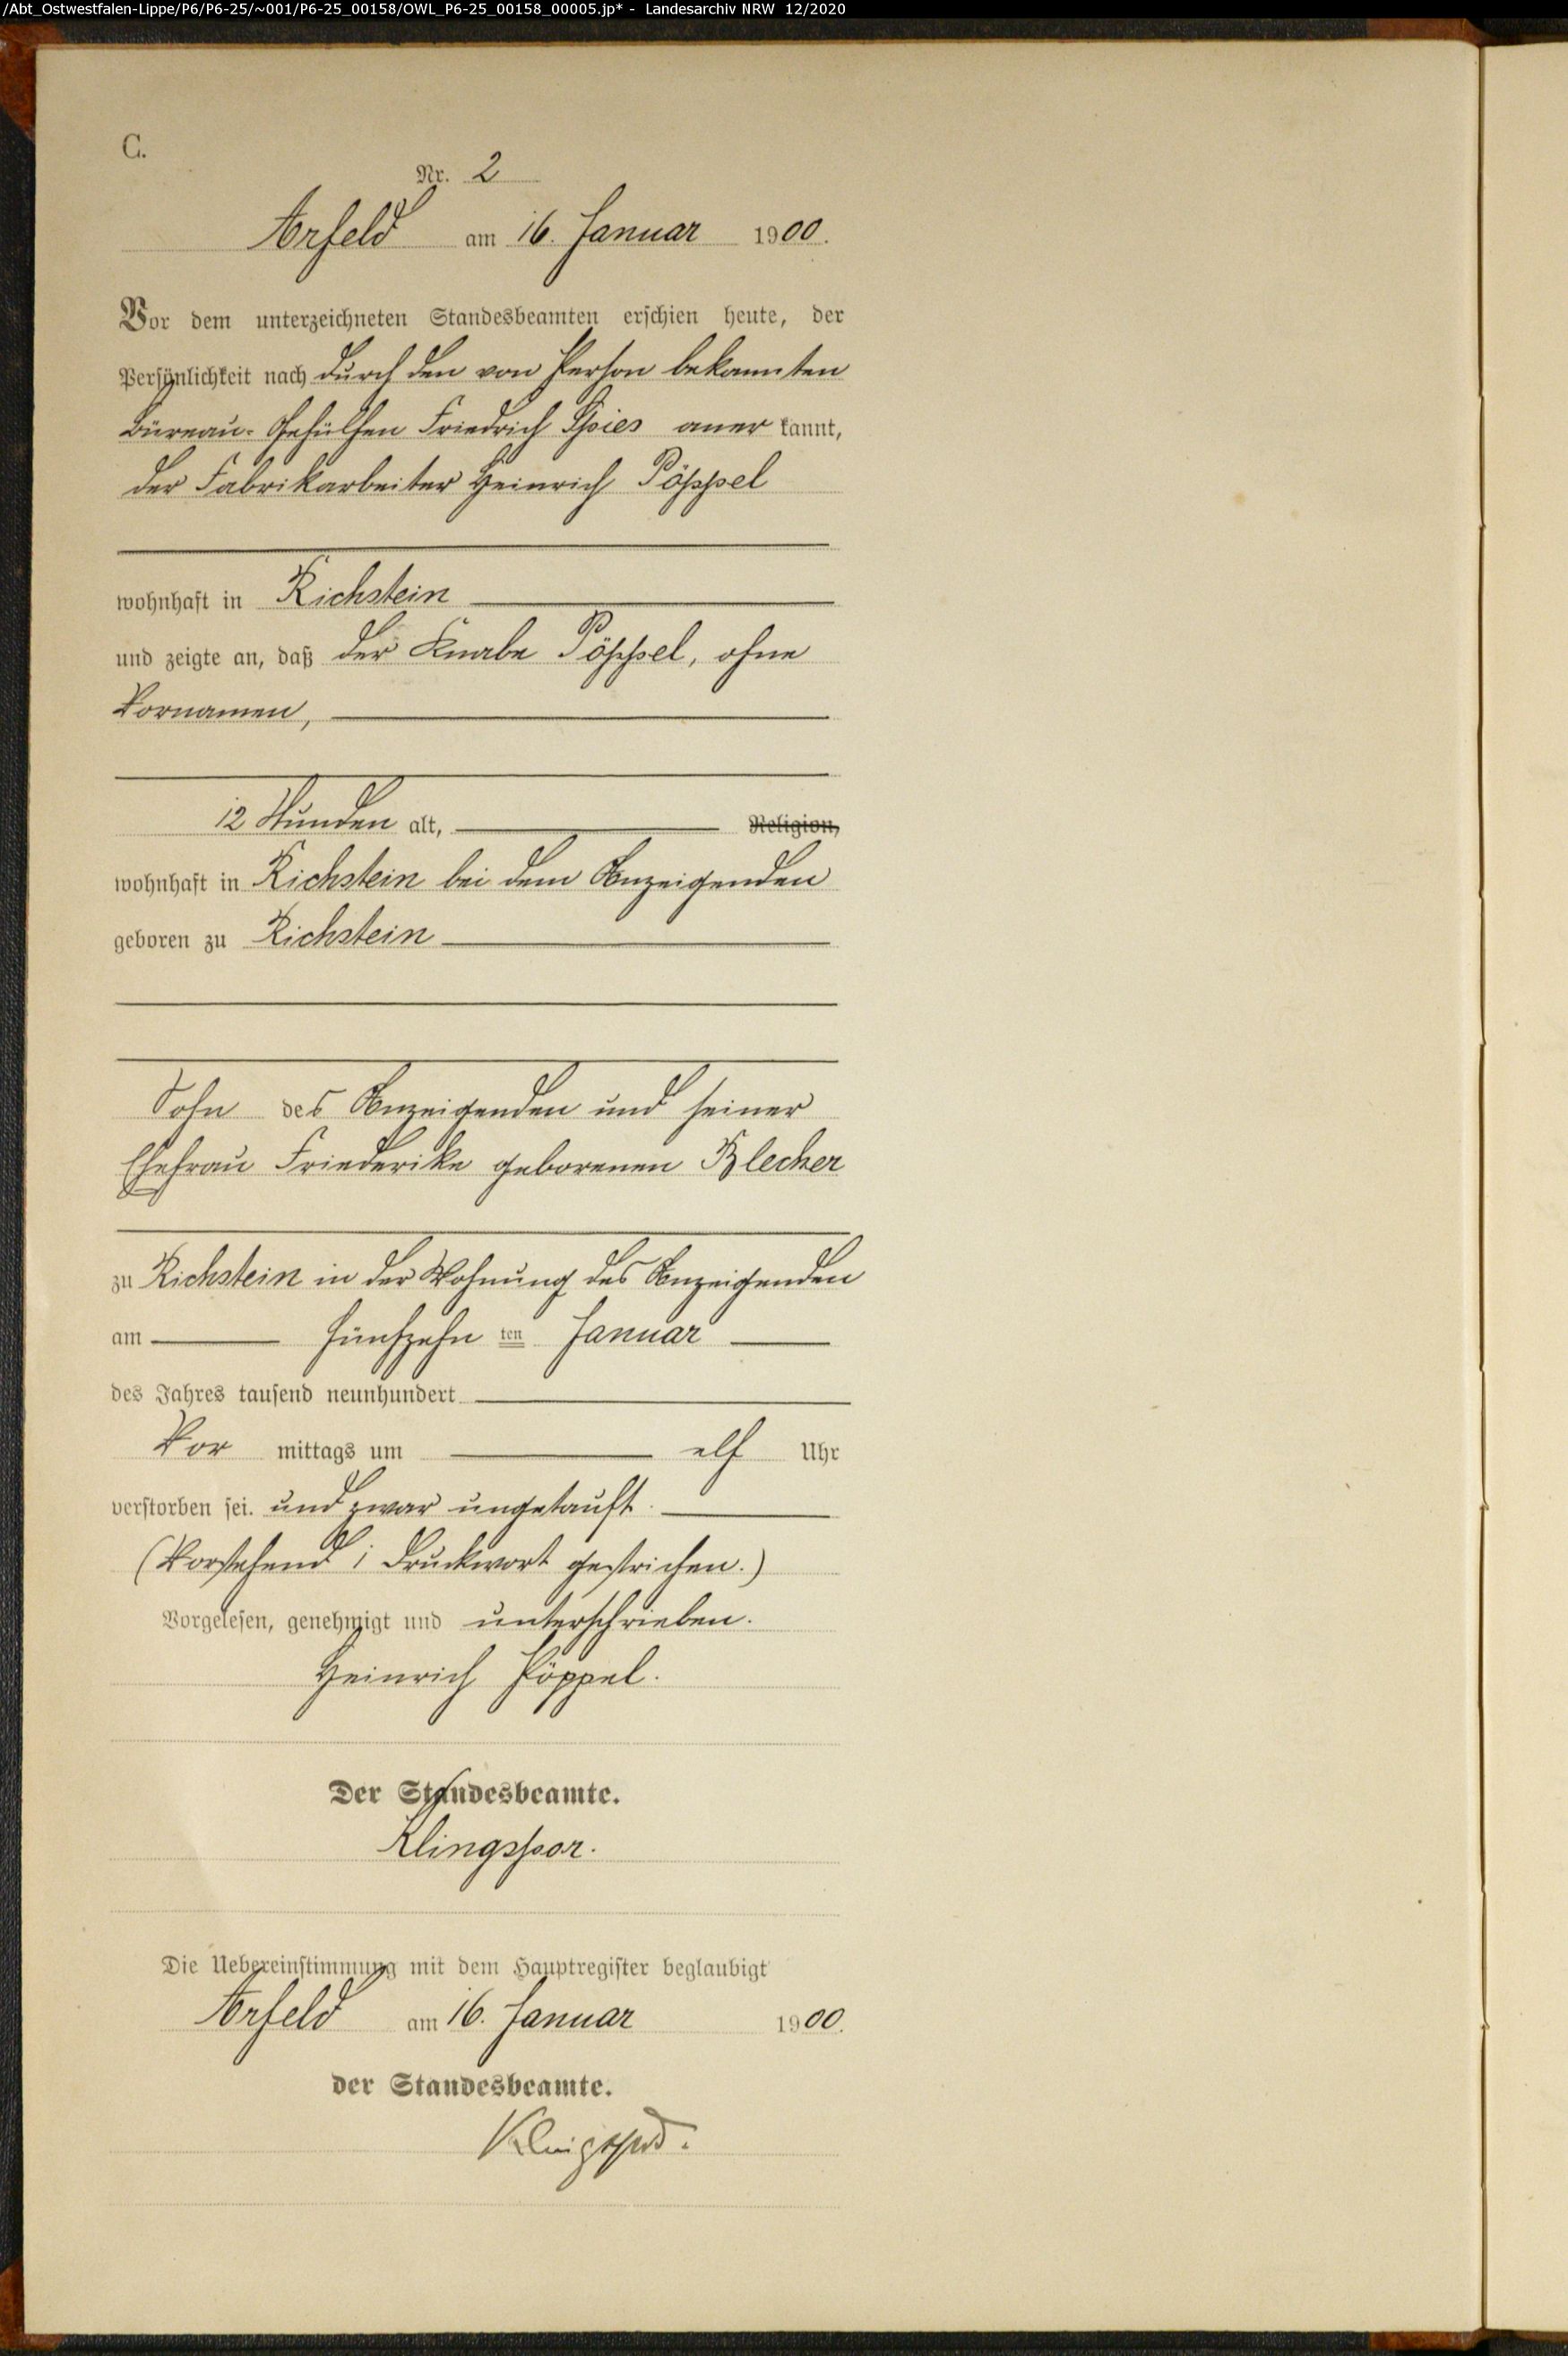 /Abt_Ostwestfalen-Lippe/P6/P6-25/~001/P6-25_00158/OWL_P6-25_00158_00005.jp* - Landesarchiv NRW 12/2020
C.
Nr. 2
Arfeld am 16. Januar 1900.
Vor dem unterzeichneten Standesbeamten erschien heute, der
Persönlichkeit nach durch den von Person bekannten
Büreau-Gehülfen Friedrich Spies anerkannt,
der Fabrikarbeiter Heinrich Pöppel
wohnhaft in Richstein
und zeigte an, daß der Knabe Pöppel, ohne
Vornamen,
12 Stunden alt, Religion,
wohnhaft in Richstein bei dem Anzeigenden
geboren zu Richstein
Sohn des Anzeigenden und seiner
Ehefrau Friederike geborenen Blecher
zu Richstein in der Wohnung des Anzeigenden
am fünfzehn ten Januar
des Jahres tausend neunhundert
Vor mittags um elf Uhr
verstorben sei. und zwar ungetauft.
(Vorstehend 1 Druckwort gestrichen.)
Vorgelesen, genehmigt und unterschrieben.
Heinrich Pöppel.
Der Standesbeamte.
Klingspor.
Die Uebereinstimmung mit dem Hauptregister beglaubigt
Arfeld am 16. Januar 1900.
der Standesbeamte.
Klingspor.